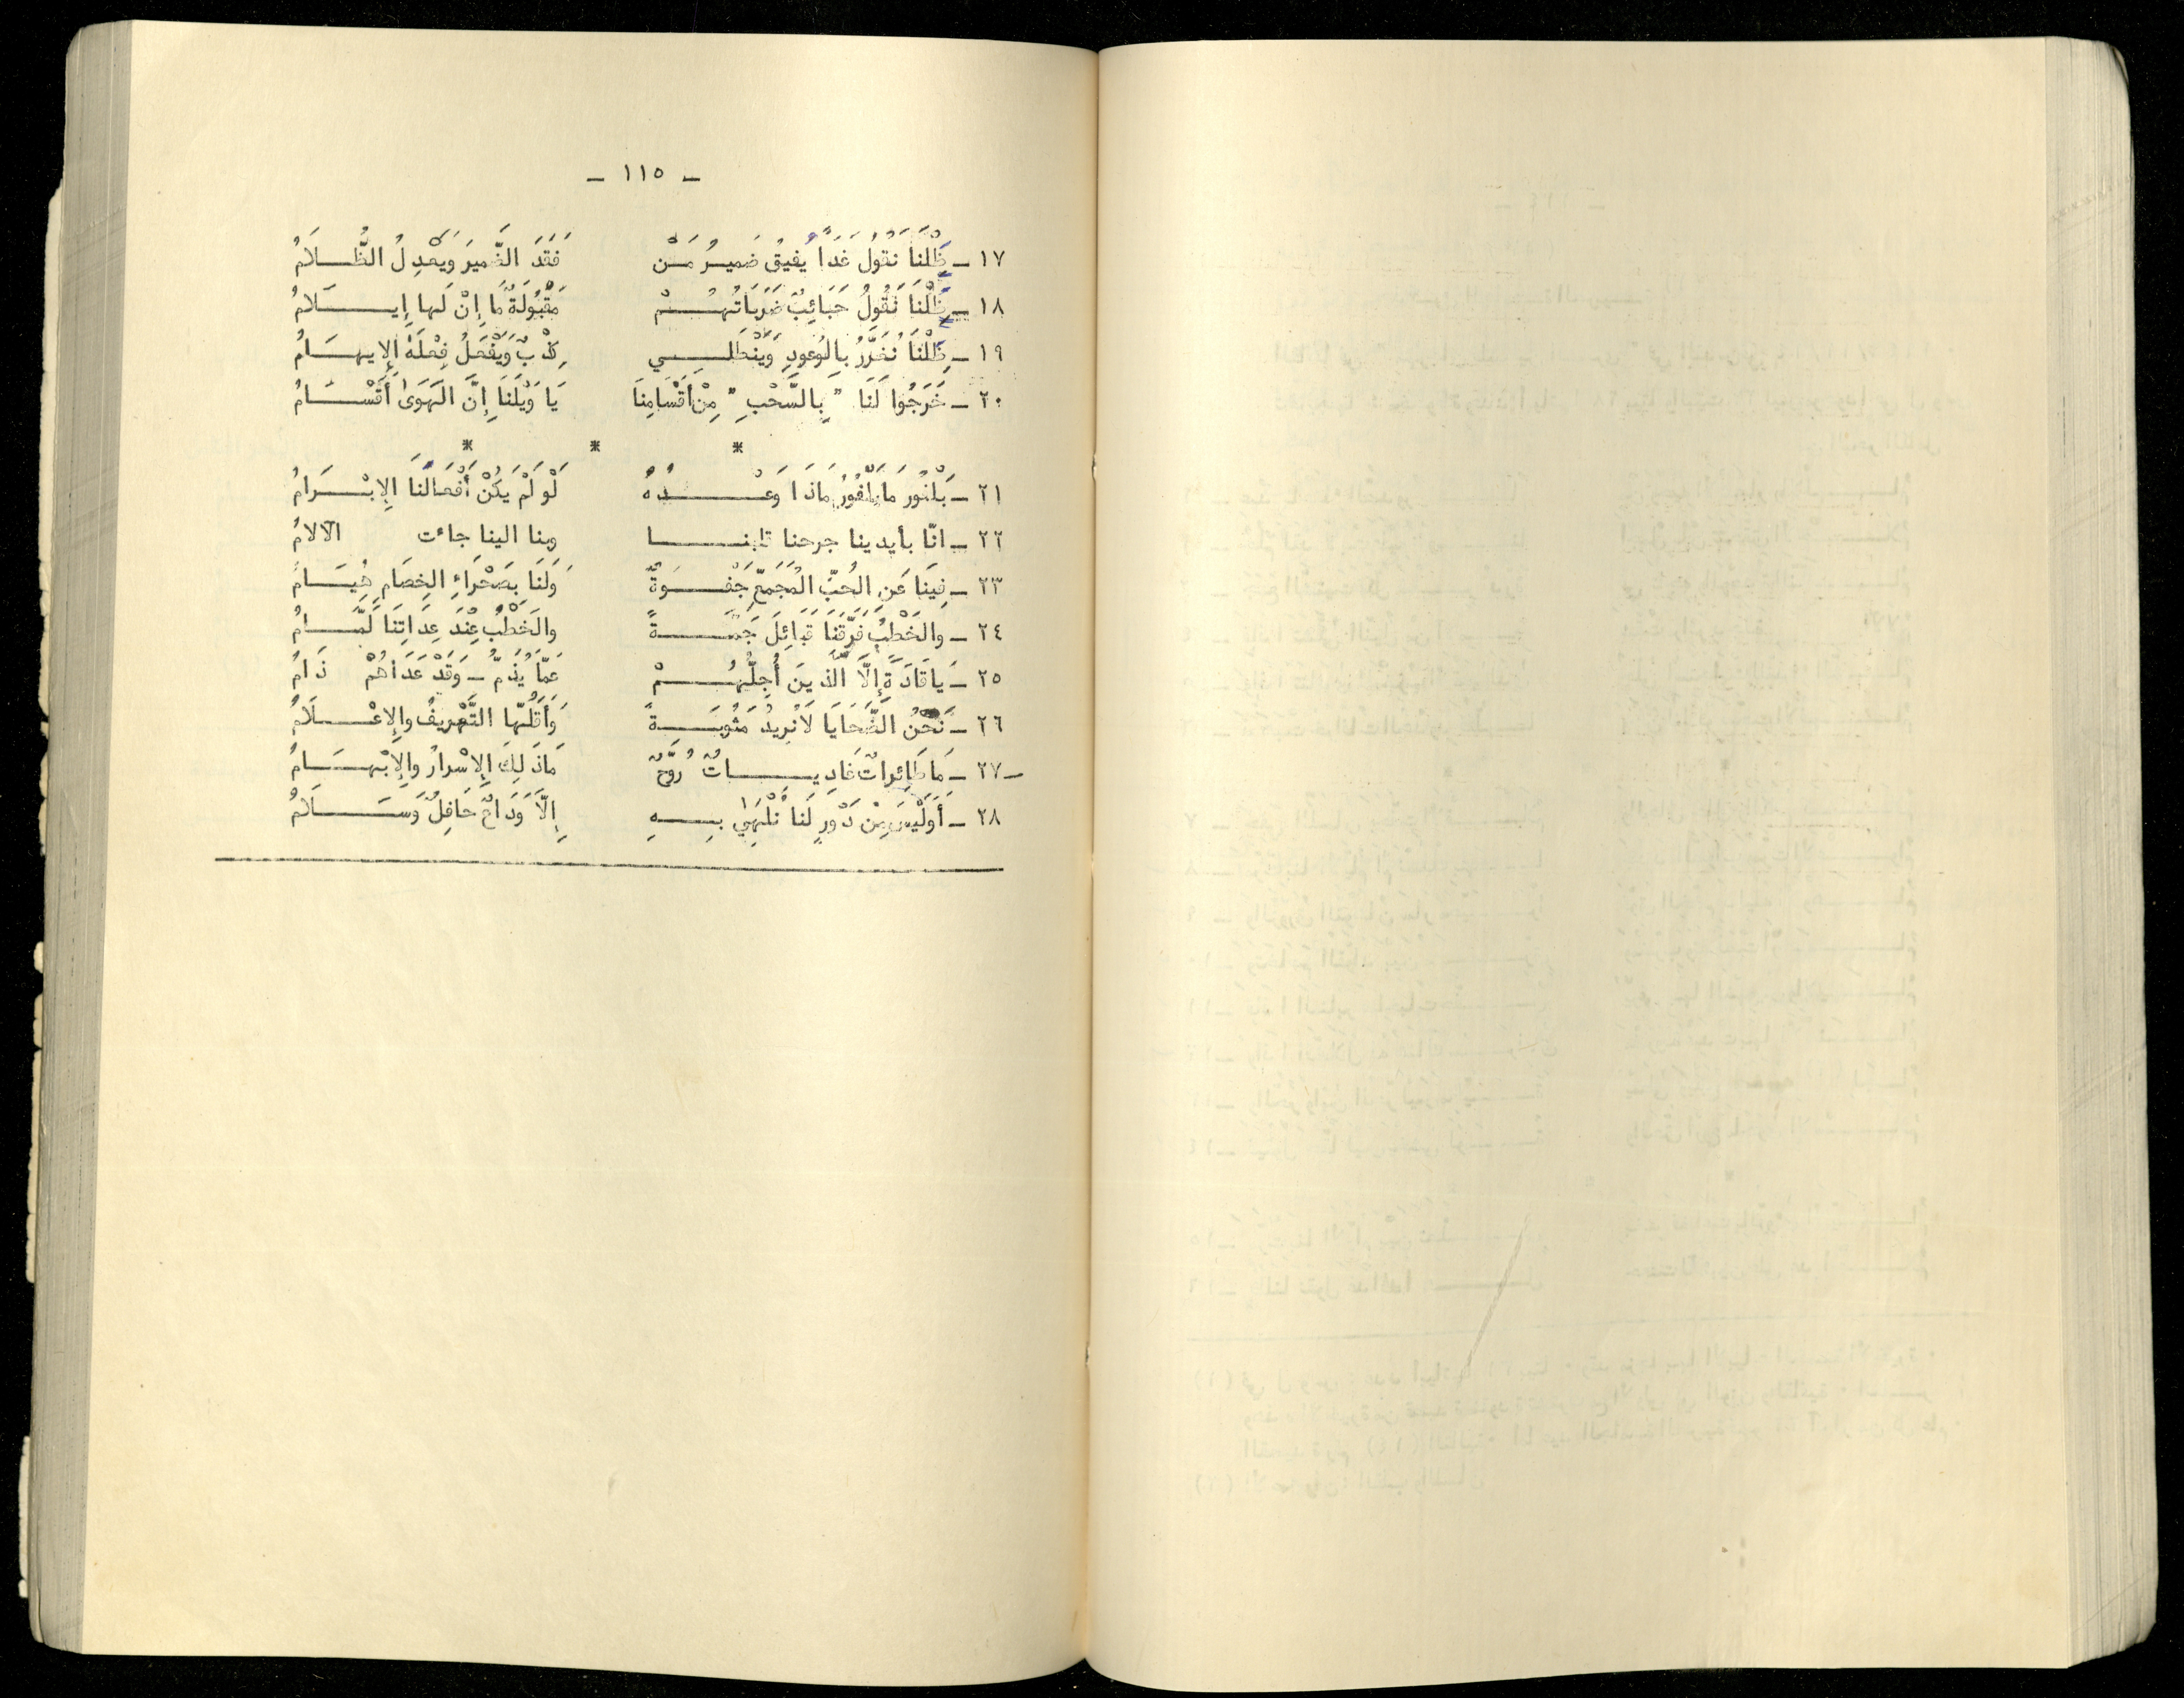 - ١١٥ -
١٧ - ظَلْنَا نَقُولُ غَدًا يُفيقُ ضَميرُ مَنْ فَقَدَ الضَّميرَ وَيَعْدِلُ الظُّلَامُ
١٨ - ظَلْنَا نَقُولُ حَبَائِبٌ ضَرَبَاتُهُمْ مَقْبُولَةٌ مَا إِنْ لَها إِيلَامُ
١٩ - ظَلْنَا نُغَرَّرُ بِالوُعودِ وَيَنْطَلِي كِذْبٌ وَيَفْعَلُ فِعْلَهُ الإِيهَامُ
٢٠ - خَرَجُوا لَنَا " بِالسَّحْبِ " مِنْ أَقْسَامِنَا يَا وَيْلَنَا إِنَّ الهَوَى أَقْسَامُ
* * *
٢١ - بَلْفُور مَا بَلْفُورُ مَاذَا وَعْدُهُ لَوْ لَمْ يَكُنْ أَفْعَالَنَا الإِبْرَامُ
٢٢ - انّا بأيدينا جرحنا قلبنا وبنا الينا جاءت الآلامُ
٢٣ - فِينَا عَنِ الحُبِّ المُجَمِّعِ جَفْوَةٌ وَلَنَا بِصَحْرَاءِ الخِصَامِ هُيَامُ
٢٤ - والخَطْبُ فَرَّقَنَا قَبَائِلَ جَمَّةً والخَطْبُ عِنْدَ عِدَاتِنَا لَمَّامُ
٢٥ - يَا قَادَةً إِلَّا الَّذينَ أُجِلُّهُمْ عَمَّا يُذَمُّ - وَقَدْ عَدَاهُمْ ذَامُ
٢٦ - نَحْنُ الضَّحَايَا لَا نُرِيدُ مَثُوبَةً وَأَقَلُّهَا التَّعْرِيفُ والإِعْلَامُ
٢٧ - مَا طَائِراتٌ غَادِيَاتٌ رُوَّحٌ مَا ذَلِكَ الإِسْرارُ والإِبْهَامُ
٢٨ - أَوَلَيْسَ مِنْ دَوْرٍ لَنَا نُلْهَى بِهِ إِلَّا وَدَاعٌ حَافِلٌ وَسَلَامُ